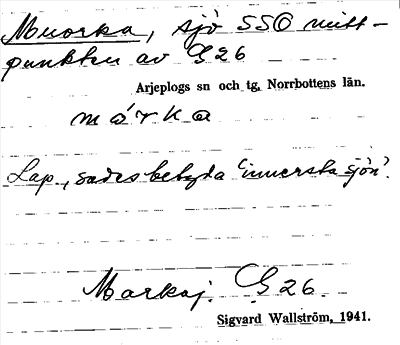 Muorka, sjö SSO mitt-
punkten av G 26
Arjeplogs sn och tg, Norrbottens län.
mårka
Lap., sades betyda 'innersta sjön'.
Markaj. G 26.
Sigvard Wallström, 1941.